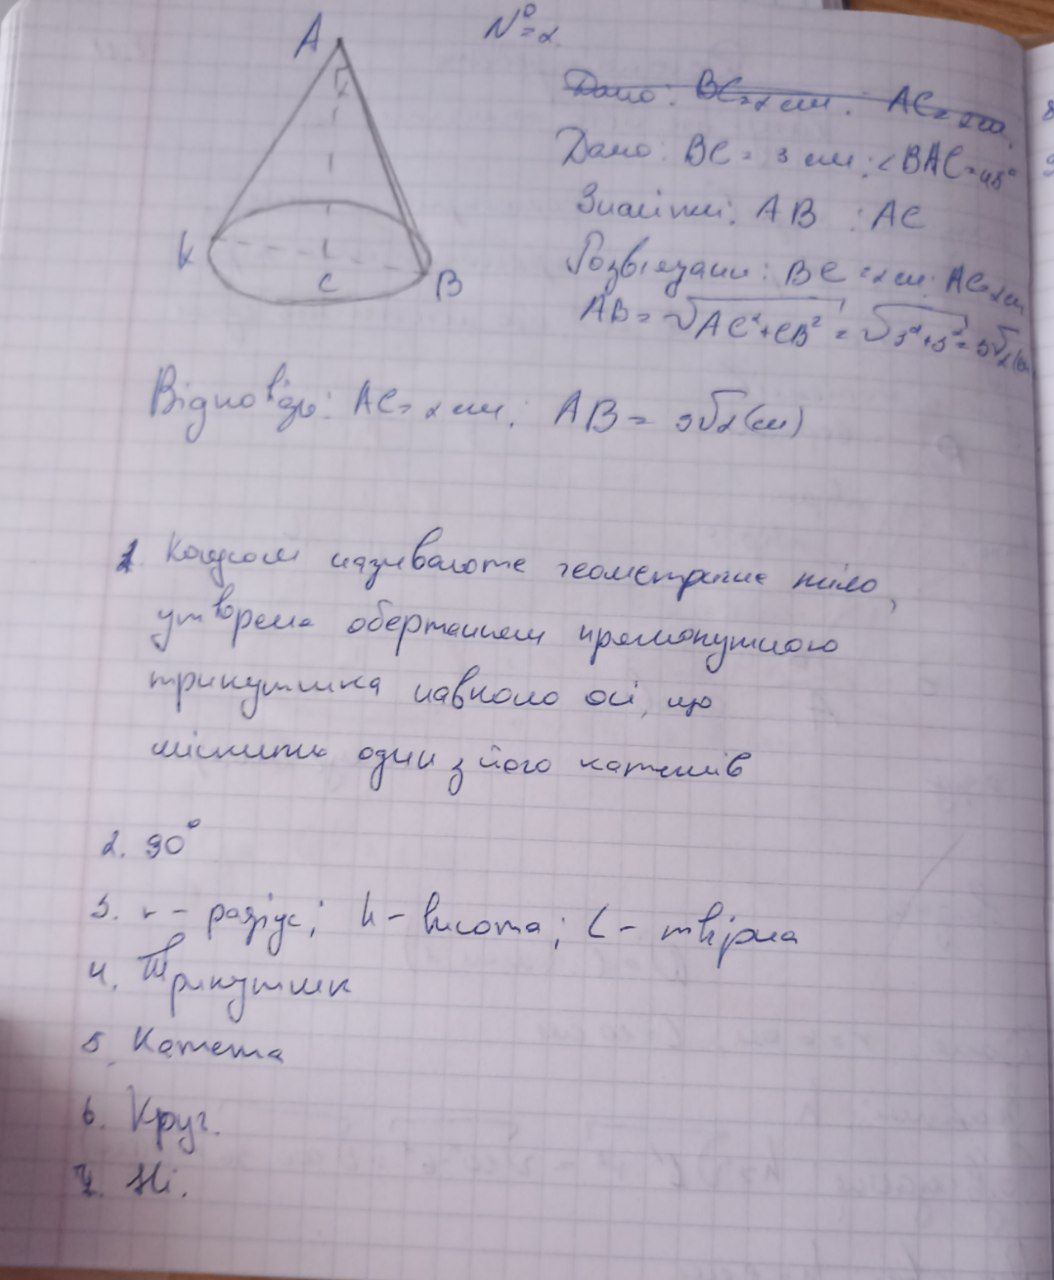 №2
A
Дано: BC=2 см; AC=2см
Дано: BC= 3 см; <BAC=45°
Знайти: AB ; AC
Розв'язання: BC=2см; AC=2см
K
C
B
AB=√AC²+CB² = √3²+3² = 3√2(см)
Відповідь: AC=2см; AB= 3√2(см)
1. Конусом називаюте геометричне тіло,
утворене обертанням прямокутного
трикутника навколо осі, що
містить один з його катетів
2. 90°
3. r - радіус; h - висота; L - твірна
4. Трикутник
5. Катета
6. Круг.
7. Ні.